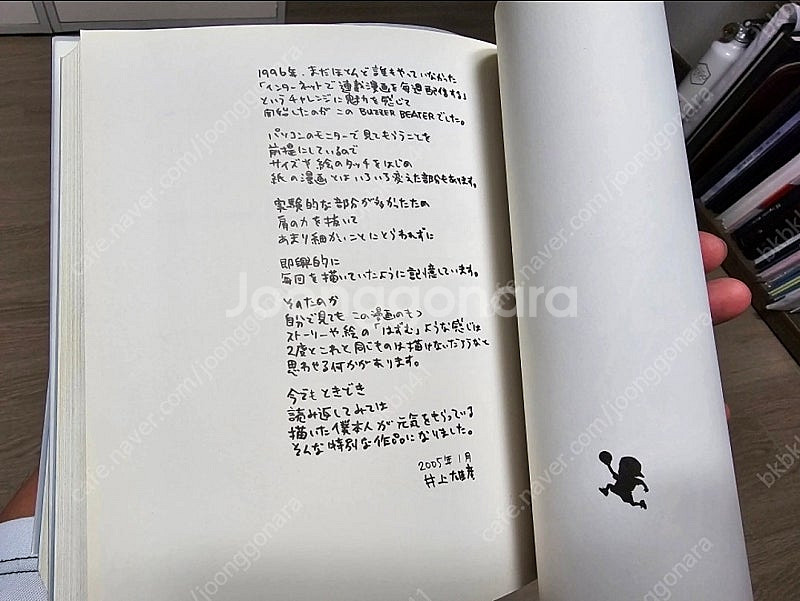 1996年、まだほとんど誰もやっていなかった
「インターネットで連載漫画を毎週配信する」
というチャレンジに魅力を感じて
開始したのがこのBUZZER BEATERでした。
パソコンのモニターで見てもらうことを
前提にしているので
サイズや絵のタッチをはじめ
紙の漫画とはいろいろ変えた部分もあります。
実験的な部分が多かったため
肩の力を抜いて
あまり細かいことにとらわれずに
即興的に
毎回を描いていたように記憶しています。
そのためか
自分で見ても この漫画のもつ
ストーリーや絵の「はずむ」ような感じは
2度とこれと同じものは描けないだろうなと
思わせる何かがあります。
今でもときどき
読み返してみては
描いた僕本人が元気をもらっている
そんな特別な作品になりました。
2005年1月
井上雄彦
Joonggonara
cafe.naver.com/joonggonara